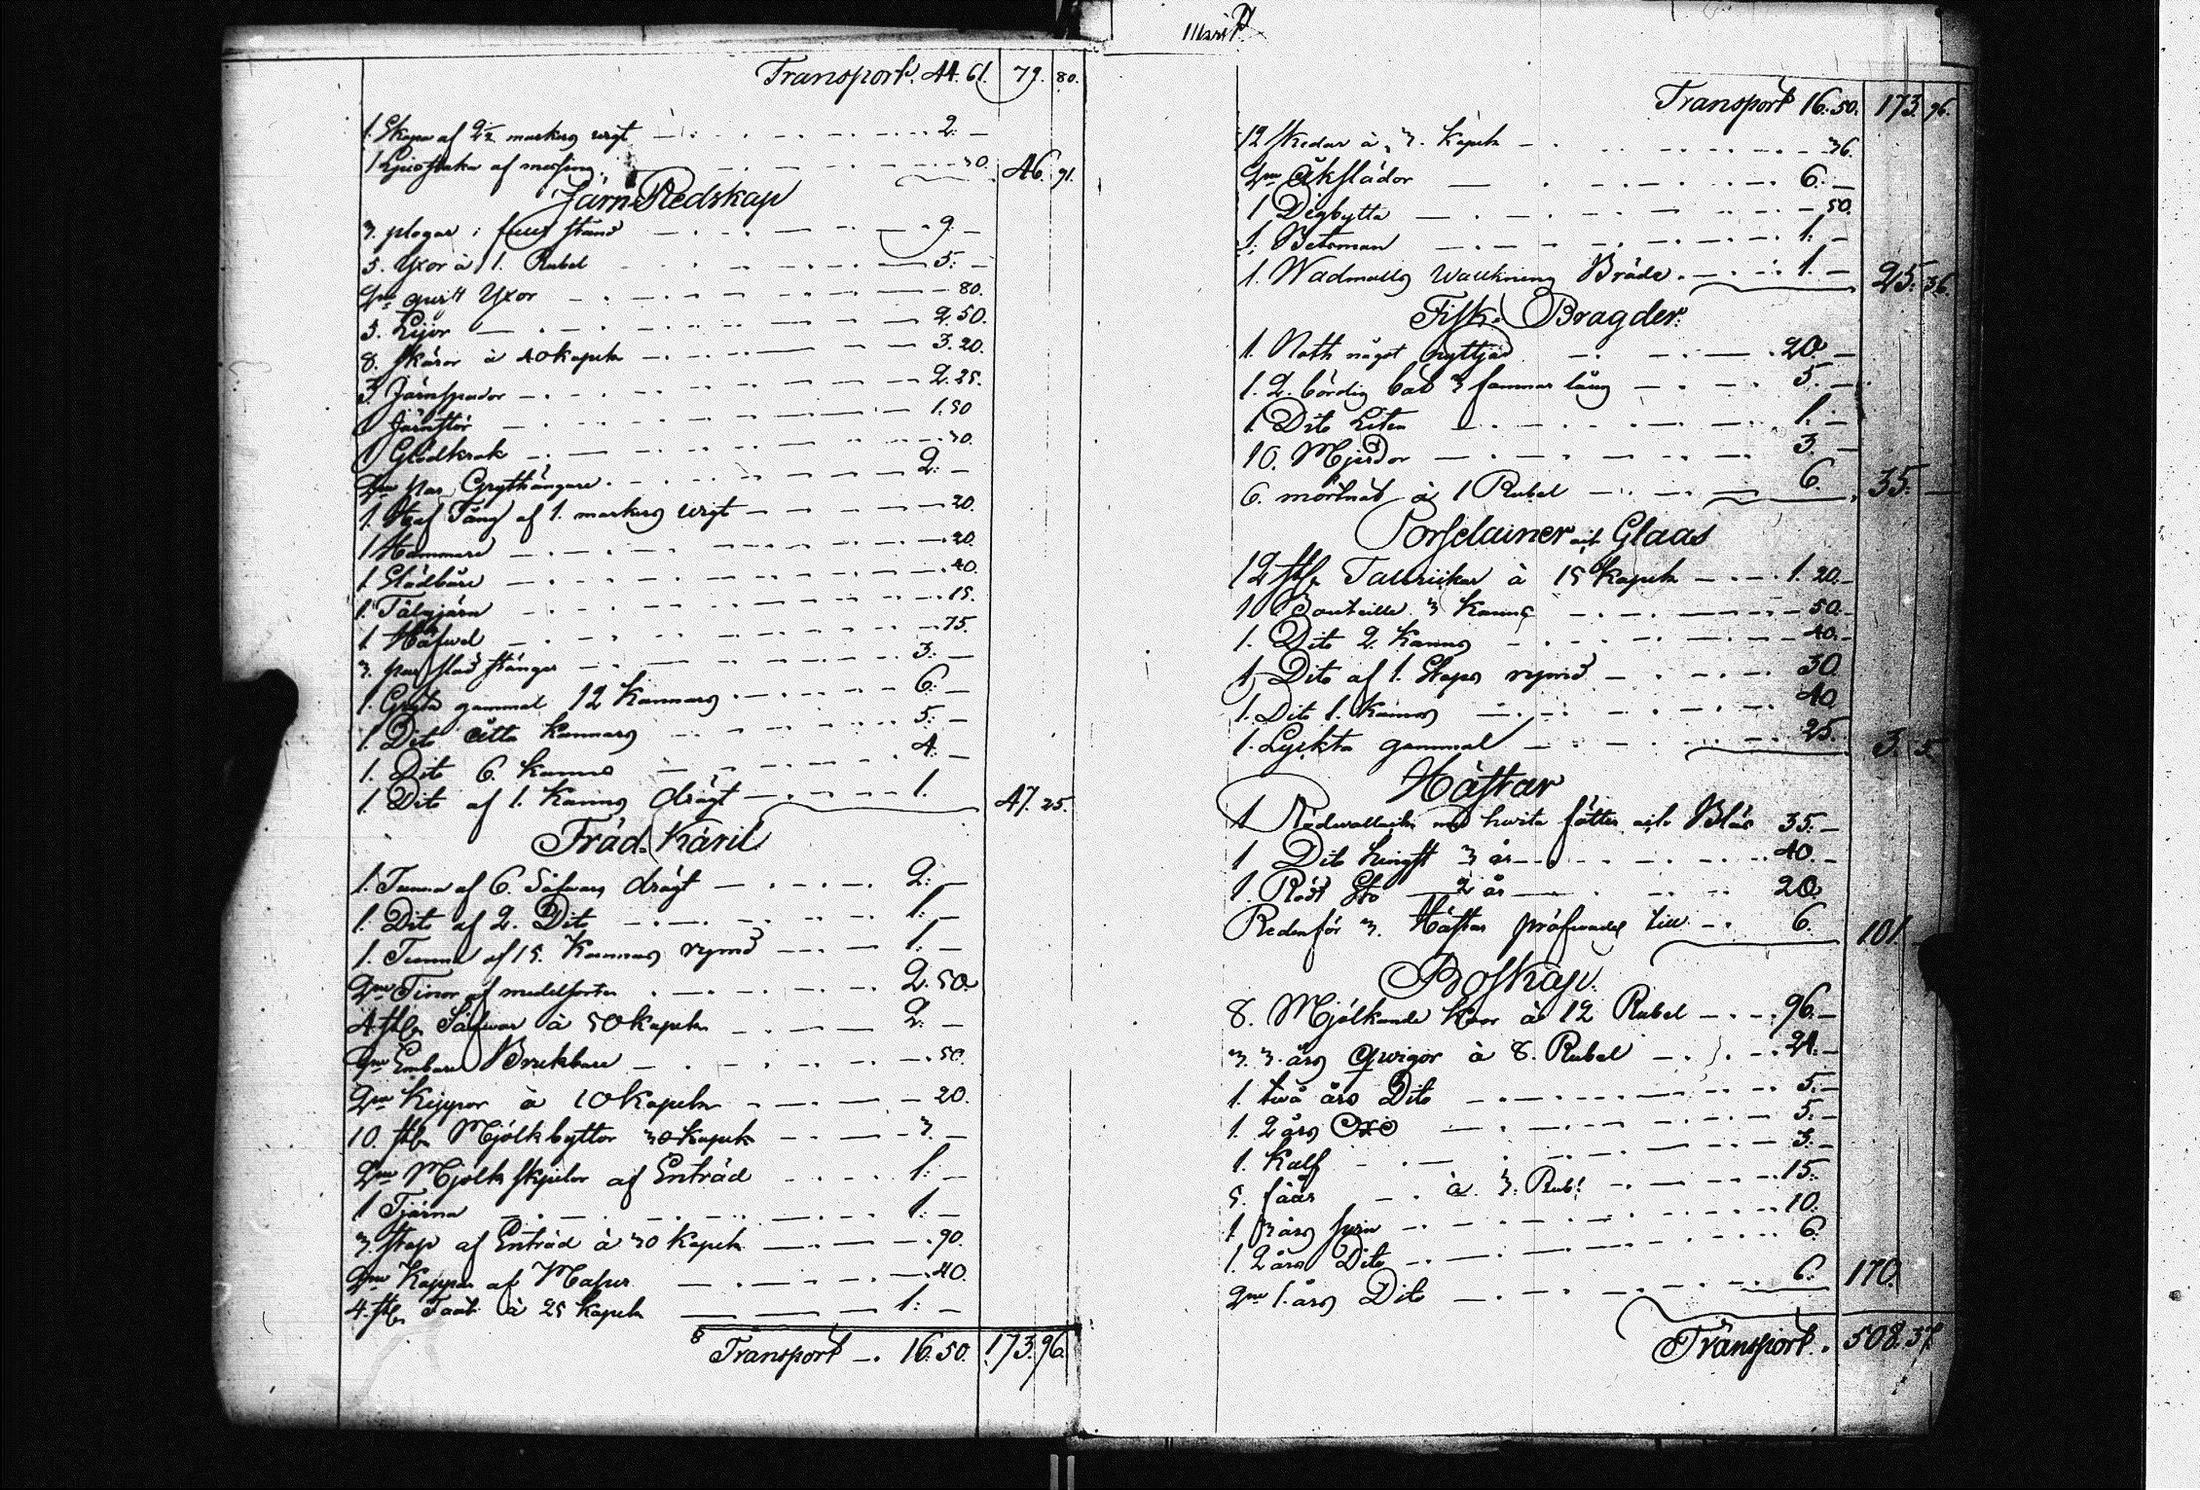 Transport. 44. 61. 79. 80.
1. Skopa af 2½ markers wigt 2. —
1 Ljusstaka af messing 30. 46. 91.
Järn Redskap
3. plogar i fullt stånd 9. —
5. Yxor à 1. Rubel 5. —
2ne Yxor 80.
5. Lijor 2. 50.
8. skäror à 40 kopek 3. 20.
3. Järnspador 2. 25.
1 Järnstör 1. 50
1 Glödkrok 30.
2ne par Grythängare 2. —
1. Tång af 1. markers wigt 20.
1 Hammare 20.
1 Glödbåre 40.
1. Täljjärn 15.
1 Häfwel 75.
3. par stänger 3. —
1. Gryta gammal 12 Kannars 6. —
1. Dito åtta Kannars 5. —
1. Dito 6. Kannas 4. —
1. Dito af 1. Kannas drägt 1. 47. 25.
Träd Käril
1. Tunna af 6. Såfwars drägt 2. —
1. Dito af 2. Dito 1. —
1. Tunna af 15. Kannas rymd 1. —
2ne Tinor af medelsorten 2. 50.
4. st. Såfwar à 50 kopek 2. —
2ne Embare Brukbare 50.
2ne Kippor à 10 kopek 20.
10. st. Mjölkbyttor 30 kopek 3. —
2ne Mjölkskjulor af Enträd 1. —
1 Tjärna 1. —
3. stop af Enträd à 30 kopek 90.
2ne Kappar af Masur 40.
4. st. Faat à 25 kopek 1. —
Transport 16. 50. 173. 96.
Transport 16. 50. 173. 96.
12 skedar à 3. kopek 36.
2ne åkslädor 6. —
1 Degbytta 50.
1. Betsman 1. —
1. Wadmalls Bräde 1. — 25. 36.
Fisk Bragder
1. Noth något nyttjad 20. —
1. 2. bördig båt 3 famnar lång 5. —
1 Dito Liten 1. —
10. Mjerdor 3. —
6. mörtnät à 1 Rubel 6. 35. —
Porselainer och Glaas
12 st. Tallrickar à 15 kopek 1. 20.
1 Bouteille 3 Kannas 50.
1. Dito 2 Kannas 40.
1 Dito af 1. Stops rymd 30
1. Dito 1. Kannas 40
1. Lyckta gammal 25. 3. 5.
Hästar
1 Rödwallack med hwita fötter och Bläs 35. —
1 Dito hingst 3 år 40. —
1. Rödt Sto 2 år 20
Redenför 3. Hästar till 6. 101. —
Boskap
8. Mjölkande Koor à 12 Rubel 96. —
3. 3. års Qwigor à 8. Rubel 24. —
1. två års Dito 5. —
1. 2 års Oxe 5. —
1. Kalf 3. —
5. fåår à 3. Rub: 15.
1 3 års swin 10.
1. 2 års Dito 6.
2ne 1. års Dito 6. 170.
Transport. 508. 37.